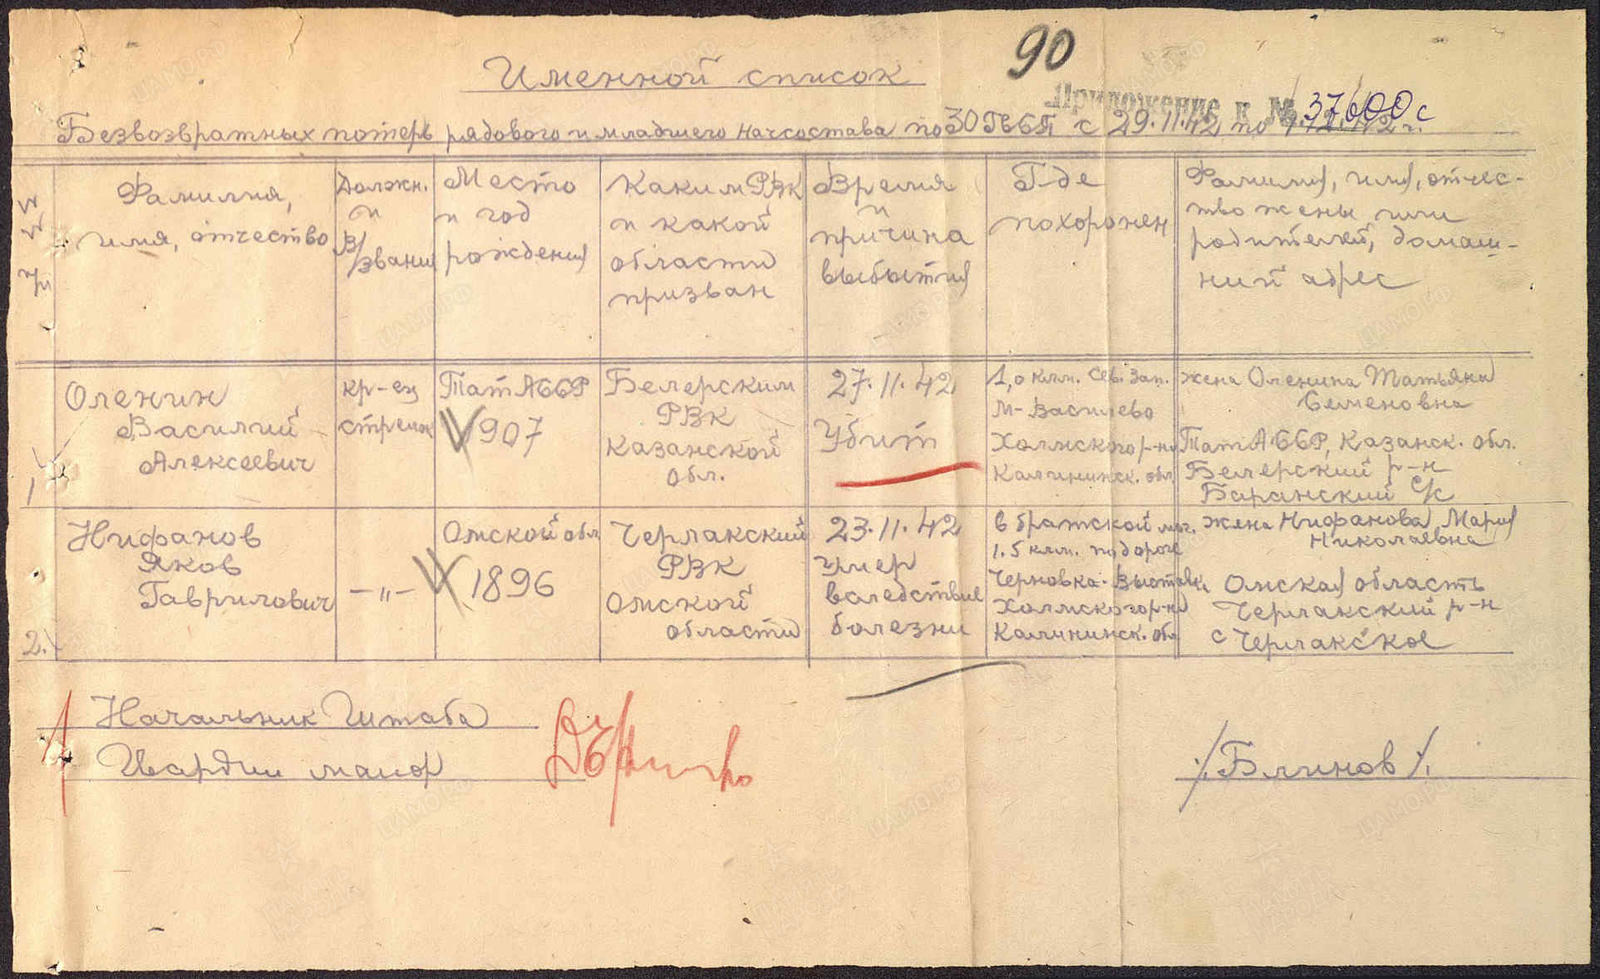 90
Именной список
Приложение к № 37600с
Безвозвратных потерь рядового и младшего начсостава по 30 Гв С П с 29.11.42 по 1.12.42 г.
№ № п/п
Фамилия,
имя, отчество
Должн.
и
В/звание
Место
и год
рождения
Каким РВК
и какой
области
призван
Время
и
причина
выбытия
Где
похоронен
Фамилия, имя, отчес-
тво жены или
родителей, домаш-
ний адрес
1
Оленин
Василий
Алексеевич
кр-ец
стрелок
Тат АССР
907
Белерским
РВК
Казанской
обл.
27.11.42
Убит
1,0 клм. Сев. Зап.
М-Василево
Холмского р-на
Калининск. обл
жена Оленина Татьяна
Семеновна
Тат АССР, Казанск. обл.
Белерский р-н
Баранский с/с
2.
Нифанов
Яков
Гаврилович
-"-
Омской обл
1896
Черлакский
РВК
Омской
области
23.11.42
умер
вследствие
болезни
в братской мог.
1.5 клм. по дороге
Черновка-Выставка
Холмского р-на
Калининск. обл
жена Нифанова Мария
Николаевна
Омская область
Черлакский р-н
с Черлакское
Начальник Штаба
Гвардии майор
/Блинов/.